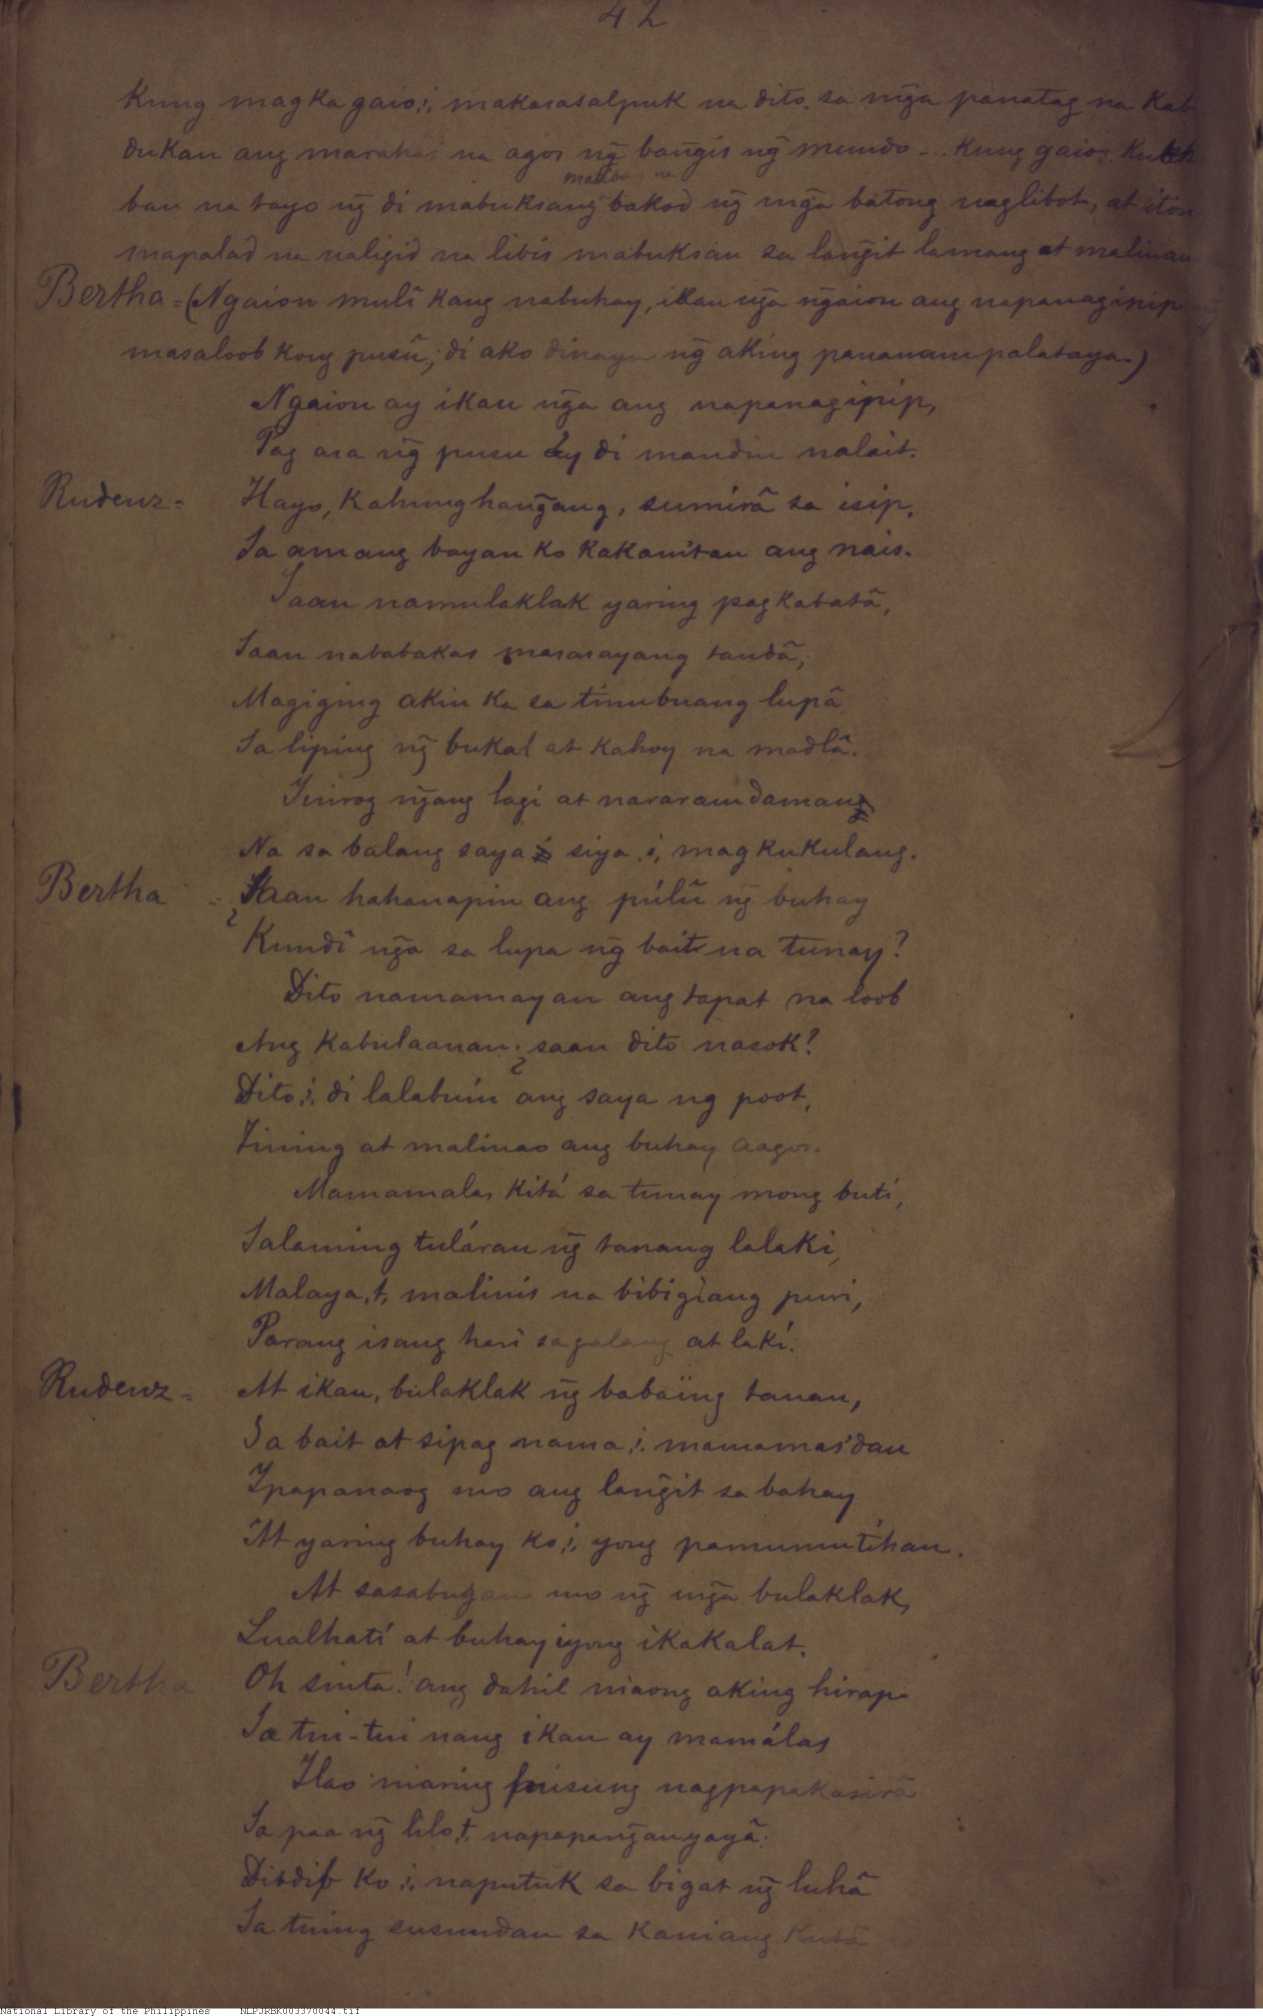 42
Kung magka gaio,i, makasasalpuk na dito sa mg̃a panatag na
dukan ang na agos ng̃ bang̃is ng̃ mundo ... Kung gaio,
ban na tayo ng̃ di mabuksang bakod ng̃ mg̃a batong naglibot, at
mapalad na naligid na libis mabuksan sa lang̃it lamang at
Bertha = (Ngaion mulî kang nabuhay, ikau ng̃a ng̃aion ang napanaginip
masaloob kong pusũ; di ako dinaya ng̃ aking pananampalataya.)
Ngaion ay ikau ng̃a ang napanaginip,
Pag asa ng̃ pusu ay di mandin nalait.
Rudenz = Hayo, Kahunghang̃ang, sumirâ sa isip,
Sa amang bayan ko kakamtan ang nais.
Saan namulaklak yaring pagkabatâ,
Saan nababakas masasayang tandâ,
Magiging akin ka sa tinubuang lupâ
Sa liping ng̃ bukal at kahoy na madlâ.
Inirog ng̃ang lagi at nararamdamang
Na sa balang saya siya,i, magkukulang.
Bertha = ¿Saan hahanapin ang púlũ ng̃ buhay
Kundî ng̃a sa lupa ng̃ bait na tunay?
Dito namamayan ang tapat na loob
Ang kabulaanan ¿saan dito nasok?
Dito,i, di lalabuin ang saya ng poot,
Tining at malinao ang buhay aagos.
Mamamalas kitá sa tunay mong buti,
Salaming tuláran ng̃ tanang lalaki,
Malaya,t, malinis na bibigìang puri,
Parang isang harî sa galang at lakí.
Rudenz = At ikau, bulaklak ng̃ babaïng tanan,
Sa bait at sipag nama,i, mamamasdan
Ipapanaog mo ang lang̃it sa bahay
At yaring buhay ko,i, yong pamumutíhan.
At sasabugan mo ng̃ mg̃a bulaklak,
Lualhatí at buhay iyong ikakalat.
Bertha Oh sinta! ang dahil niaong aking hirap
Sa tui-tui nang ikau ay mamálas
Ilao niaring pusung nagpapakasirâ
Sa paa ng̃ lilo,t, napapang̃anyayâ.
Dibdib ko,i, naputuk sa bigat ng̃ luhâ
Sa tuing susundan sa kaniang kutâ